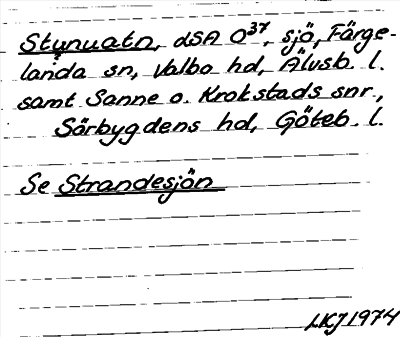 Stynuatn, dSA O37, sjö, Färge-
landa sn, Valbo hd, Älvsb. l.
samt Sanne o. Krokstads snr.,
Sörbygdens hd, Göteb. l.
Se Strandesjön
LKJ 1974